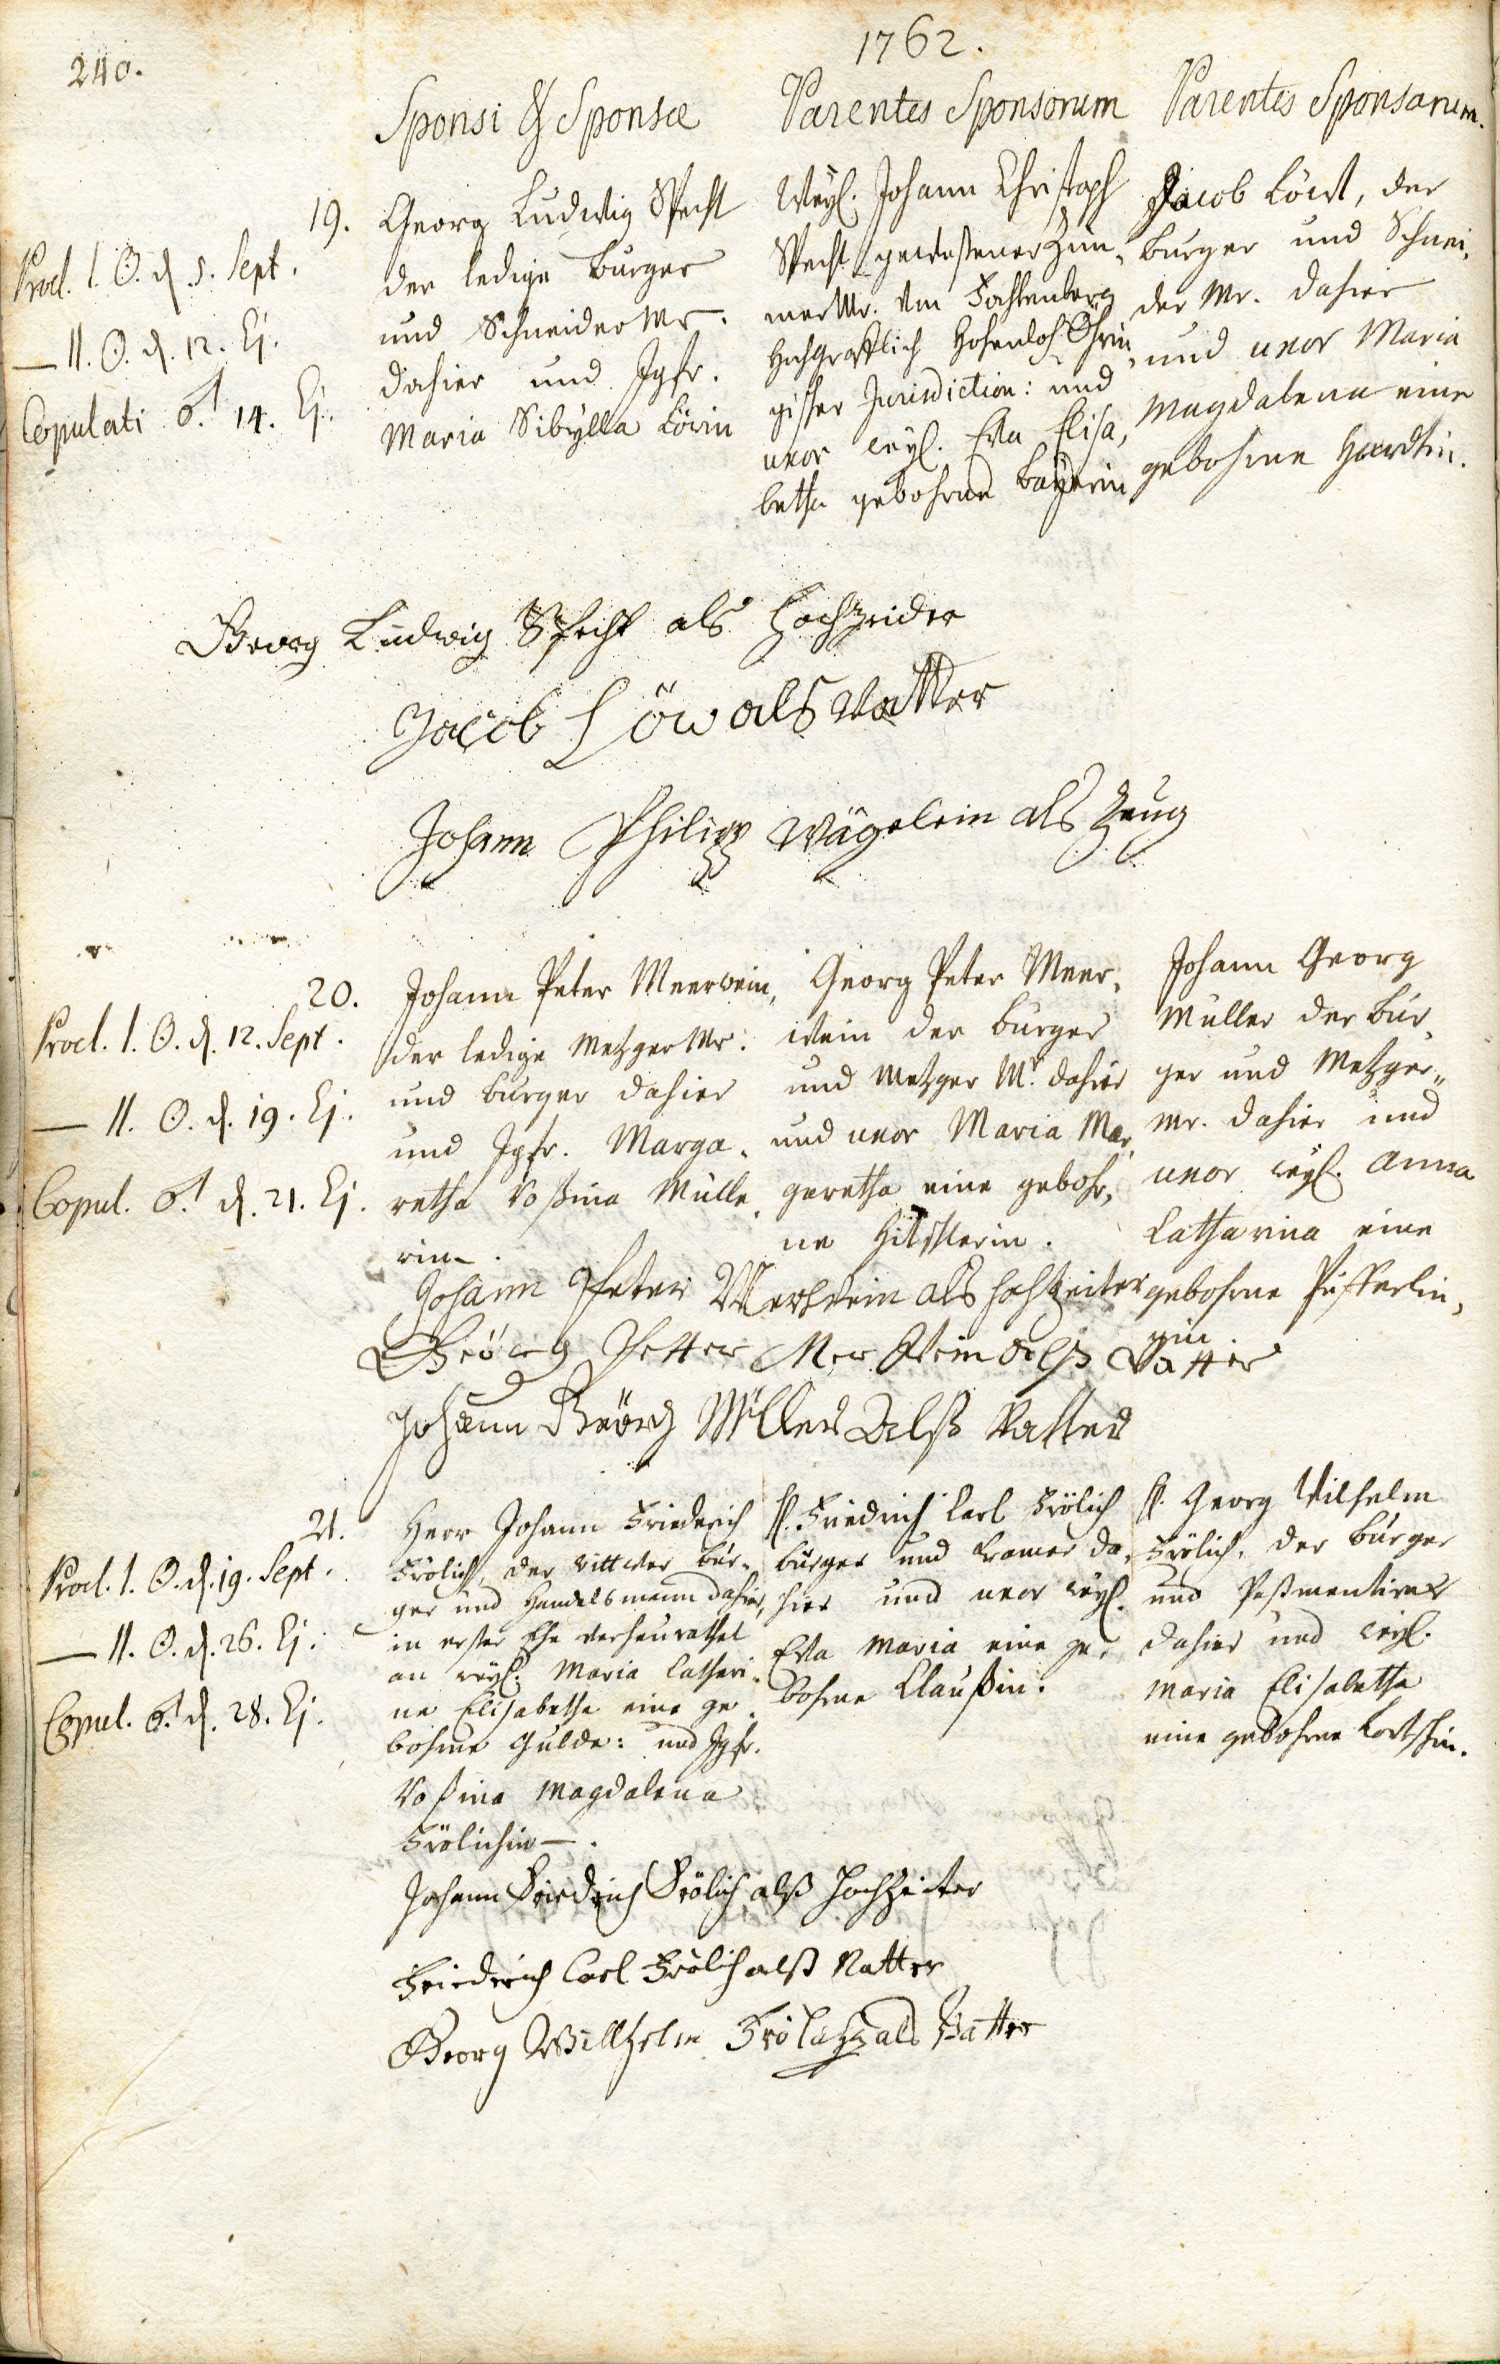 240.
1762.
Sponsi & Sponsæ
Parentes Sponsorum
Parentes Sponsarum.
19.
Procl. I. ☉. d. 5. Sept.
— II. ☉. d. 12. Ej.
Copulati ♂ 14. Ej.
Georg Ludwig Specht
der ledige Burger
und Schneider Mr.
dahier und Jgfr.
Maria Sibylla Löwin
Weyl. Johann Christoph
Specht gewesener Zim-
mer Mr. von
Hochgräfflich Hohenloh Öhrin-
gisher Jurisdiction: und
uxor weyl. Eva Elisa-
betha gebohrne Bayerin
Jacob Löw, der
Burger und Schnei-
der Mr. dahier
und uxor Maria
Magdalena eine
gebohrne Hardtin.
Georg Ludwig Specht als Hochzeider
Jacob Löw als Vatter
Johann Philipp Wägelein als Zeug
20.
Procl. I. ☉. d. 12. Sept.
— II. ☉. d. 19. Ej.
Copul. ♂ d. 21. Ej.
Johann Peter Meerwein,
der ledige Metzger Mr.
und Burger dahier
und Jgfr. Marga-
retha Rosina Mülle-
rin.
Georg Peter Meer-
wein der Burger
und Metzger Mr. dahier
und uxor Maria Mar-
garetha eine gebohr-
ne
Johann Georg
Müller der Bur-
ger und Metzger-
Mr. dahier und
uxor weyl. Anna
Catharina eine
gebohrne Pfifferlin-
gin
Johann Peter Merwein als Hochzeiter
Geörg Petter Merwein alß Vatter
Johann Geörg Müller Alß Vatter
21.
Procl. I. ☉. d. 19. Sept.
— II. ☉. d. 26. Ej.
Copul. ♂ d. 28. Ej.
Herr Johann Friederich
Frölich, der Wittwer Bur-
ger und Handelsmann dahier,
in erster Ehe verheurathet
an weyl. Maria Cathari-
na Elisabetha eine ge-
bohrne Gulde: und Jgfr.
Rosina Magdalena
Frölichin.
H. Friedrich Carl Frölich
Burger und Kramer da-
hier und uxor weyl.
Eva Maria eine ge-
bohrne Claußin.
H. Georg Wilhelm
Frölich, der Burger
und Paßmentirer
dahier und weyl.
Maria Elisabetha
eine gebohrne
Johann Friedrich Frölich alß Hochzeiter
Friederich Carl Frölich alß Vatter
Georg Willhelm Frölich als Vatter